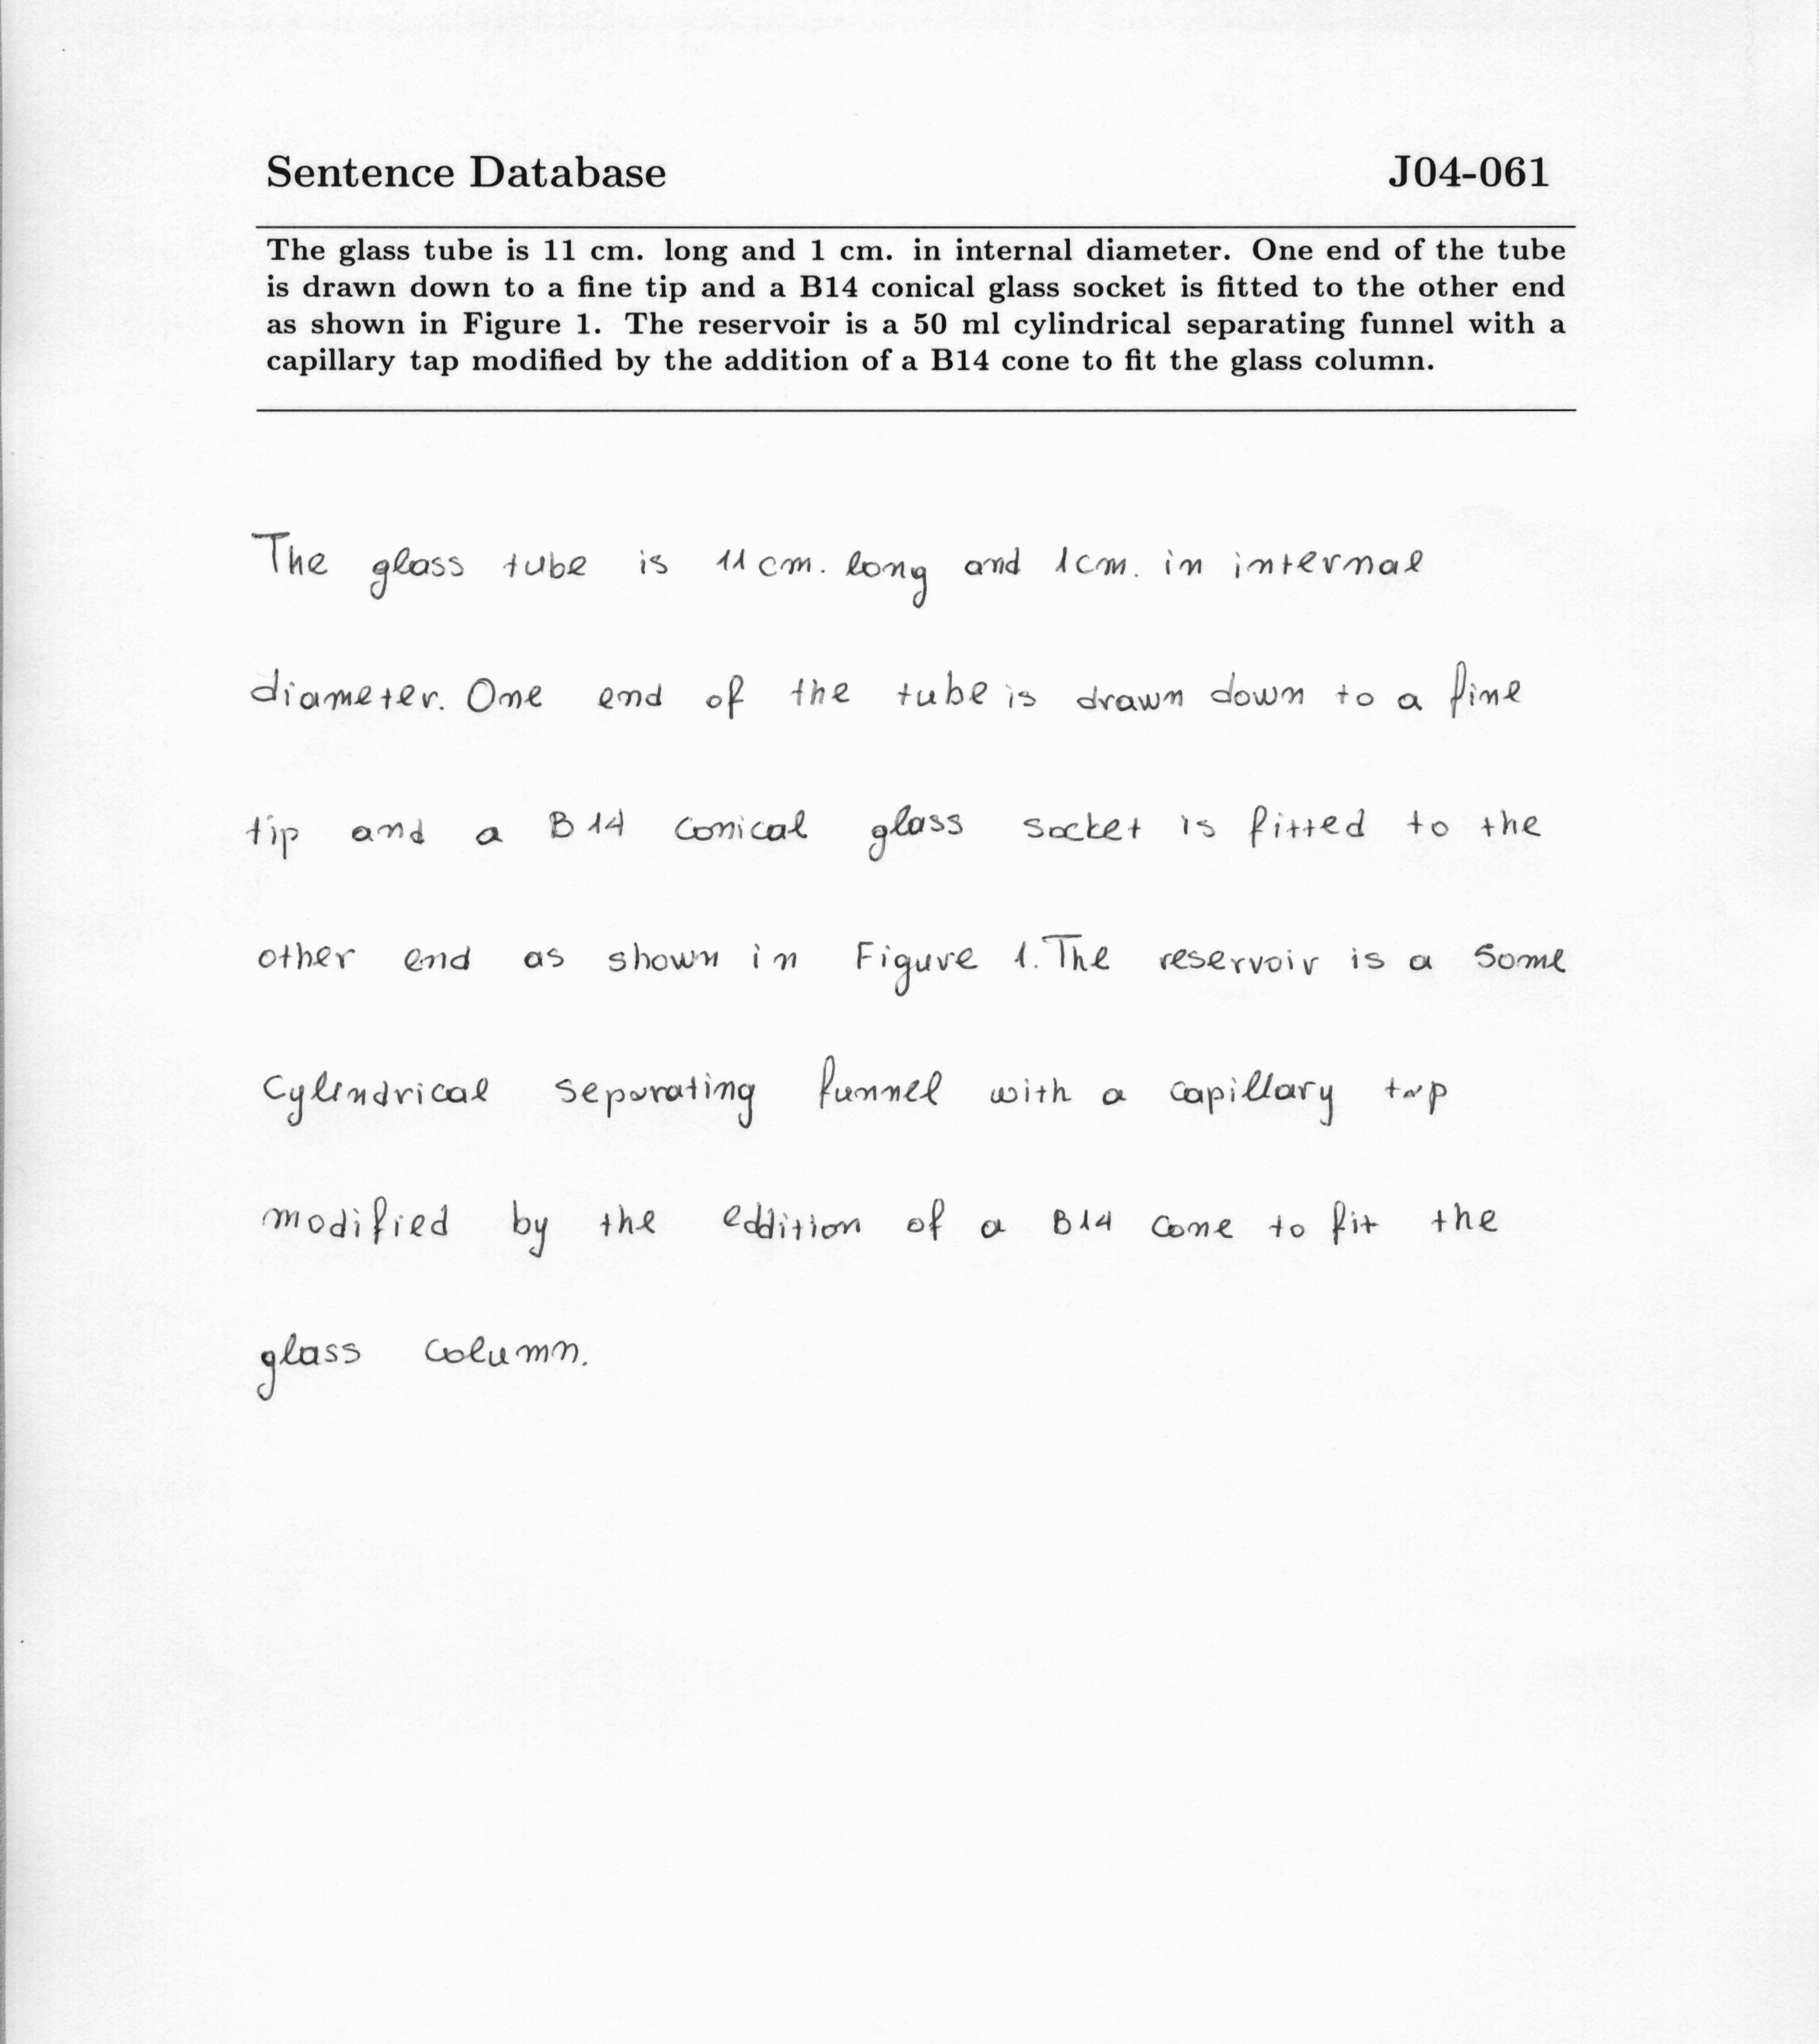 Sentence Database J04-061
The glass tube is 11 cm. long and 1 cm. in internal diameter. One end of the tube
is drawn down to a fine tip and a B14 conical glass socket is fitted to the other end
as shown in Figure 1. The reservoir is a 50 ml cylindrical separating funnel with a
capillary tap modified by the addition of a B14 cone to fit the glass column.
The glass tube is 11 cm. long and 1cm. in internal
diameter. One end of the tube is drawn down to a fine
tip and a B14 conical glass socket is fitted to the
other end as shown in Figure 1. The reservoir is a some
Cylindrical separating funnel with a capillary tap
modified by the eddition of a B14 cone to fit the
glass column.